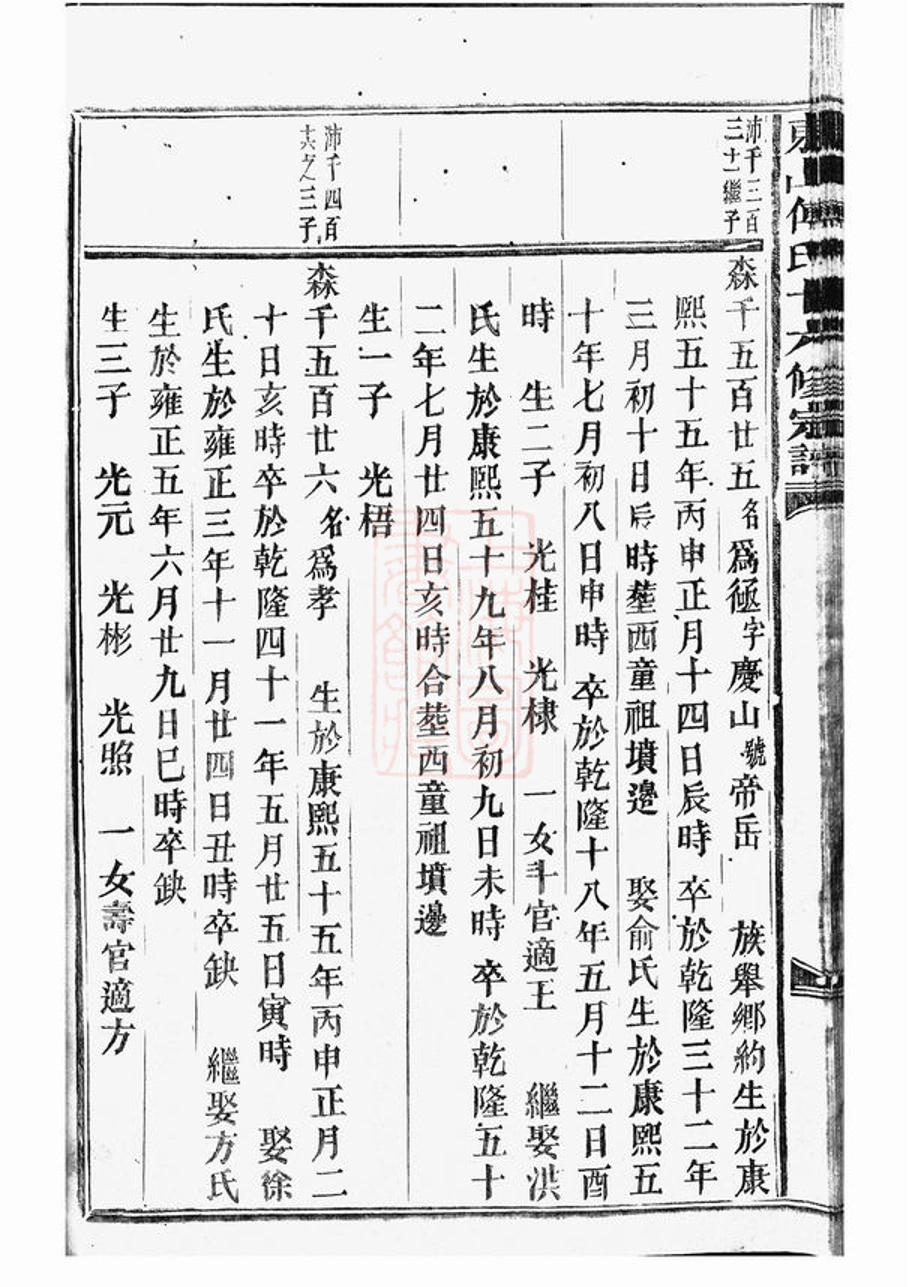 沛千三百
三十繼子
森千五百廿五名爲極字慶山號帝岳 族舉鄉約生於康
熙五十五年丙申正月十四日辰時 卒於乾隆三十二年
三月初十日辰時塟西童祖墳邊 娶俞氏生於康熙五
十年七月初八日申時 卒於乾隆十八年五月十二日酉
時 生二子 光桂 光棣 一女斗官適王 繼娶洪
氏生於康熙五十九年八月初九日未時 卒於乾隆五十
二年七月廿四日亥時合塟西童祖墳邊
生一子 光梧
沛千四百
之三子
森千五百廿六名爲孝 生於康熙五十五年丙申正月二
十日亥時卒於乾隆四十一年五月廿五日寅時 娶徐
氏生於雍正三年十一月廿四日丑時卒缺 繼娶方氏
生於雍正五年六月廿九日巳時卒缺
生三子 光元 光彬 光照 一女壽官適方